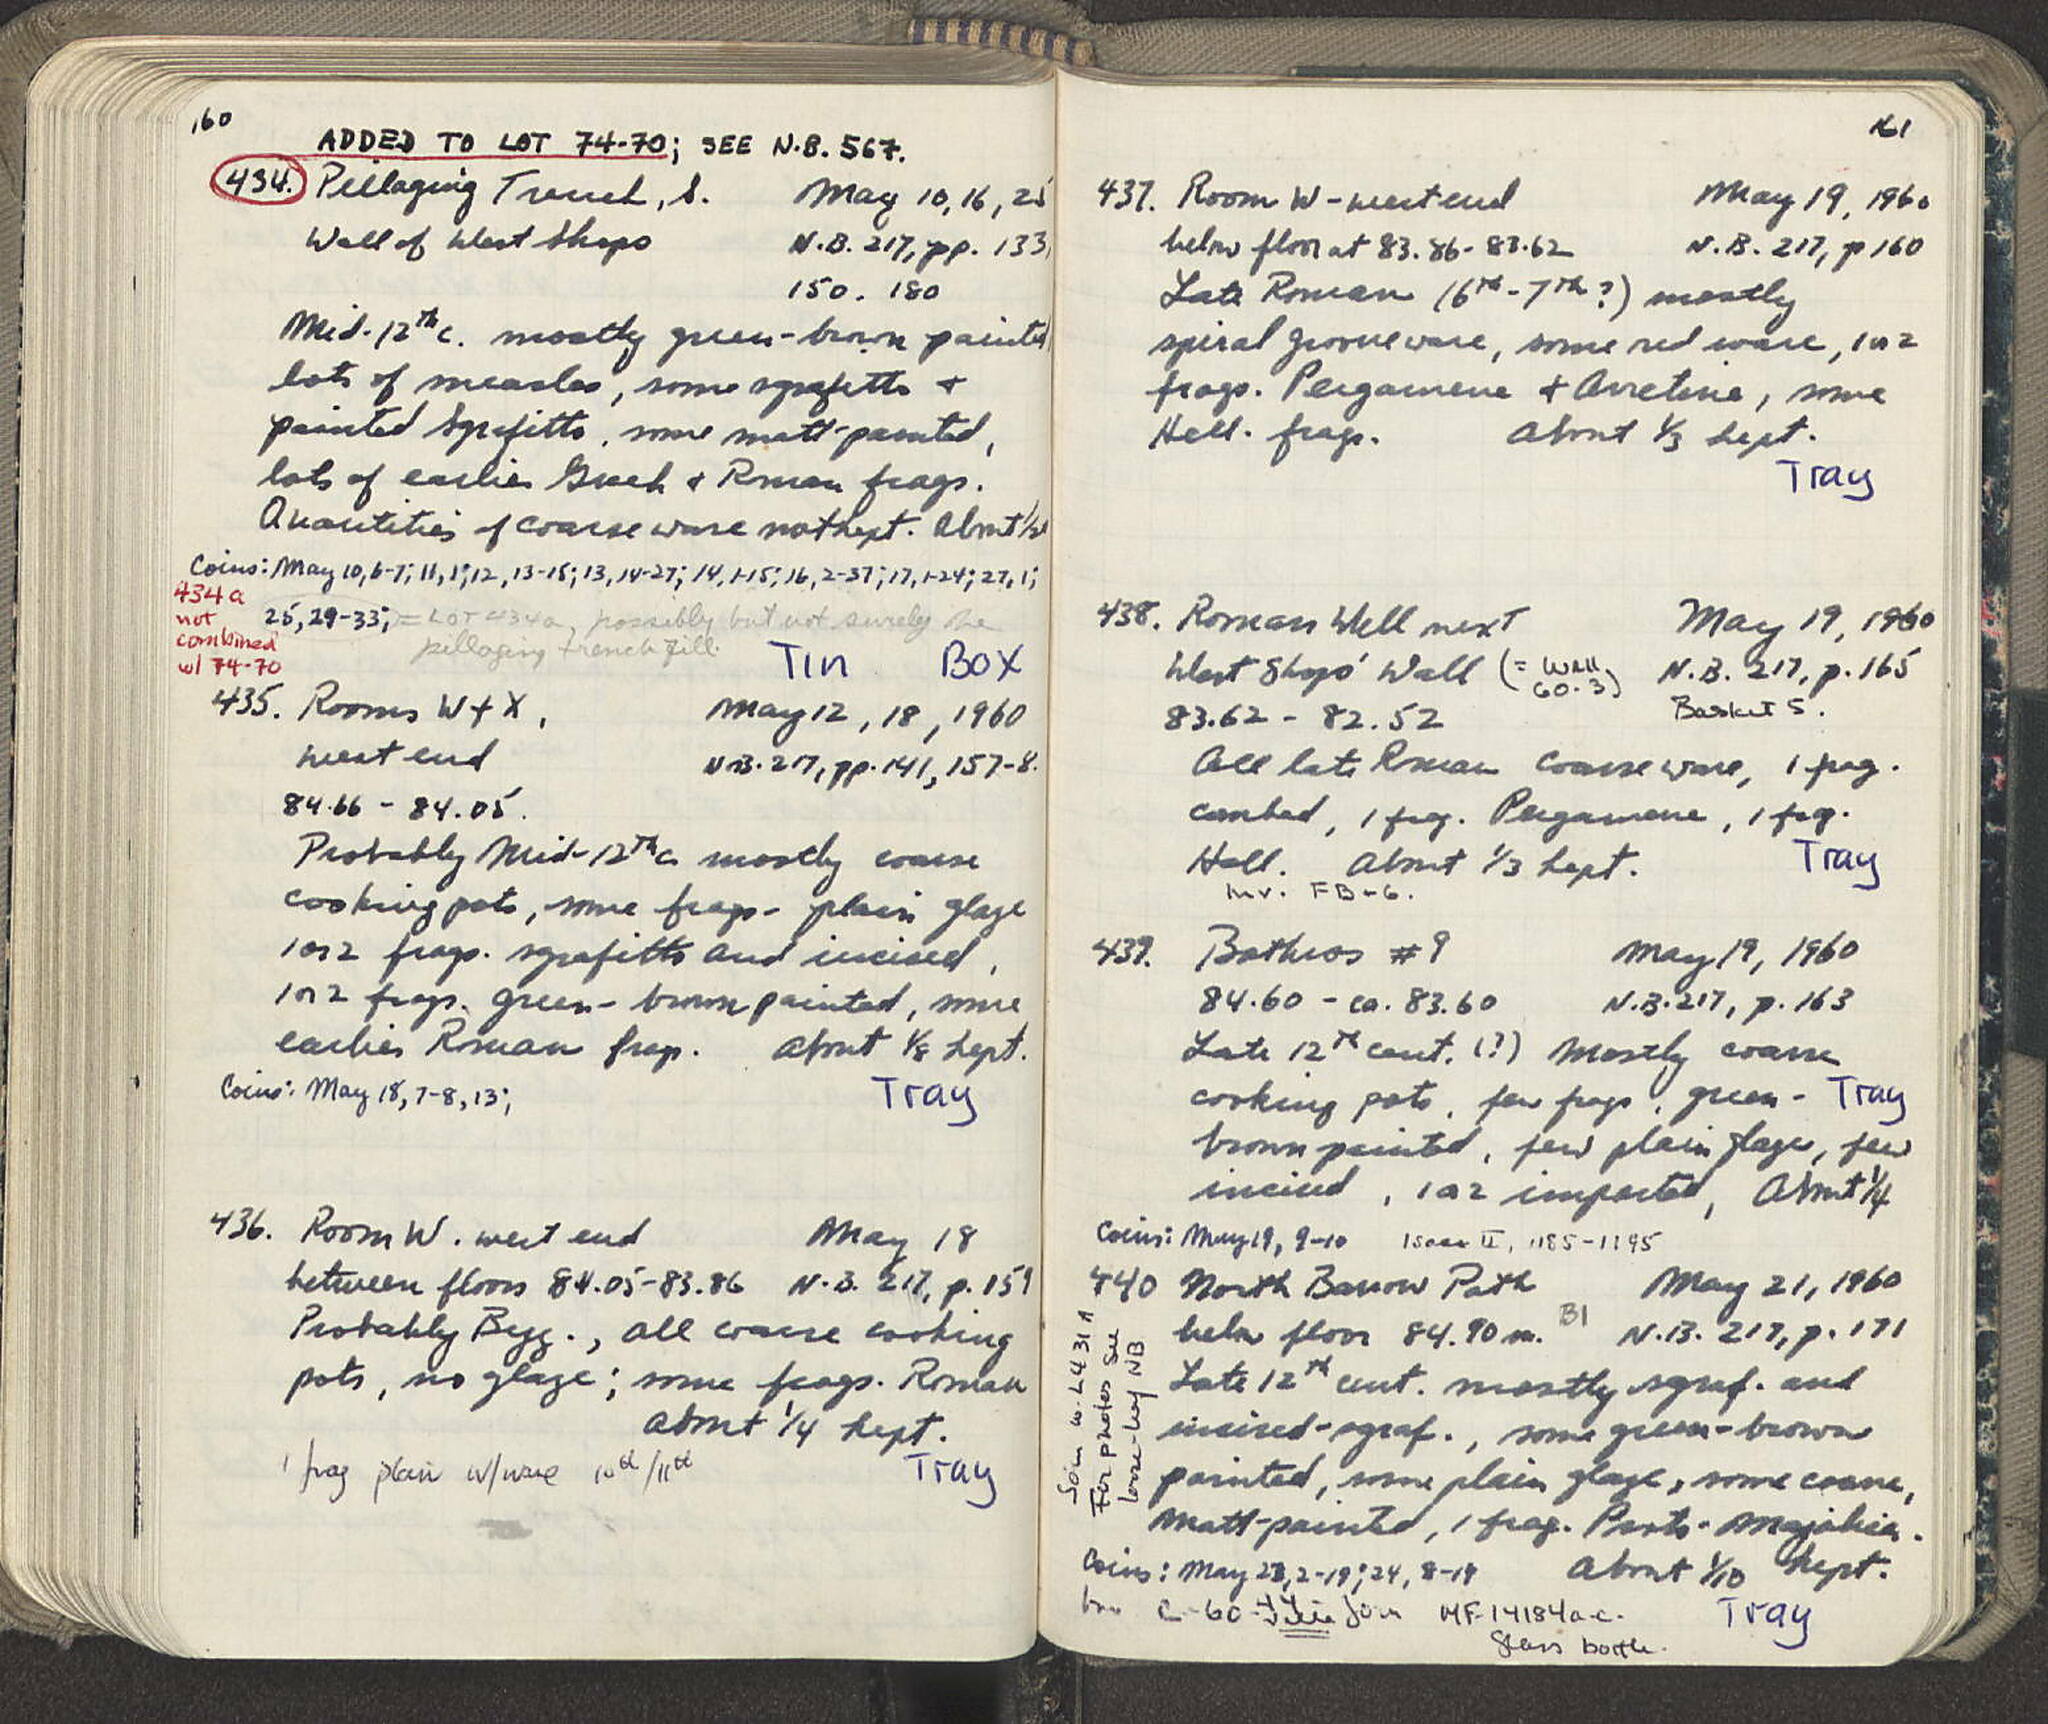 160
ADDED TO LOT 74-70; SEE N.B. 567.
434. Pillaging Trench, S. May 10, 16, 25
Wall of West Shops N.B. 217, pp. 133,
150. 180
Mid-12th c. mostly green-brown painted
lots of measles, some sgrafitto +
painted Sgrafitto, some matt-painted,
lots of earlier Greek & Roman frags.
Quantities of coarse ware not kept. About 1/2
Coins: May 10, 6-7; 11, 1; 12, 13-15; 13, 14-27; 14, 1-15; 16, 2-37; 17, 1-24; 27, 1;
25, 29-33; = LOT 434a, possibly but not surely the
pillaging trench fill.
434a
not
combined
w/ 74-70
Tin Box
435. Rooms W + X, May 12, 18, 1960
west end N.B. 217, pp. 141, 157-8.
84.66 - 84.05.
Probably Mid-12th c. mostly coarse
cooking pots, some frags. plain glaze
1 or 2 frags. sgrafitto and incised,
1 or 2 frags. green-brown painted, some
earlier Roman frags. About 1/8 kept.
Coins: May 18, 7-8, 13;
Tray
436. Room W. west end May 18
between floors 84.05-83.86 N.B. 217, p. 159
Probably Byz., all coarse cooking
pots, no glaze; some frags. Roman
about 1/4 kept.
1 frag plain w/ware 10th/11th
Tray
161
437. Room W - west end May 19, 1960
below floor at 83.86-83.62 N.B. 217, p 160
Late Roman (6th-7th?) mostly
spiral groove ware, some red ware, 1 or 2
frags. Pergamene & Arretine, some
Hell. frags. About 1/3 kept.
Tray
438. Roman Well next May 19, 1960
West Shops' Wall (= Well 60-3) N.B. 217, p. 165
83.62 - 82.52 Basket 5.
All late Roman coarse ware, 1 frag.
combed, 1 frag. Pergamene, 1 frag.
Hell. About 1/3 kept. Tray
Inv. FB-6.
439. Bothros #9 May 19, 1960
84.60 - ca. 83.60 N.B. 217, p. 163
Late 12th cent. (?) Mostly coarse
cooking pots, few frags. green- Tray
brown painted, few plain glaze, few
incised, 1 or 2 imported, About 1/4
Coins: May 19, 9-10 Isaac II, 1185-1195
440 North Barrow Path May 21, 1960
below floor 84.90 m. B1 N.B. 217, p. 171
Late 12th cent. mostly sgraf. and
incised-sgraf., some green-brown
painted, some plain glaze, some coarse,
matt-painted, 1 frag. Proto-Majolica.
Coins: May 23, 2-19; 24, 8-19 About 1/10 kept.
C-60- Join MF 14184a-c. Tray
Glass bottle.
Join w. L431
For photos see
loose-leaf NB